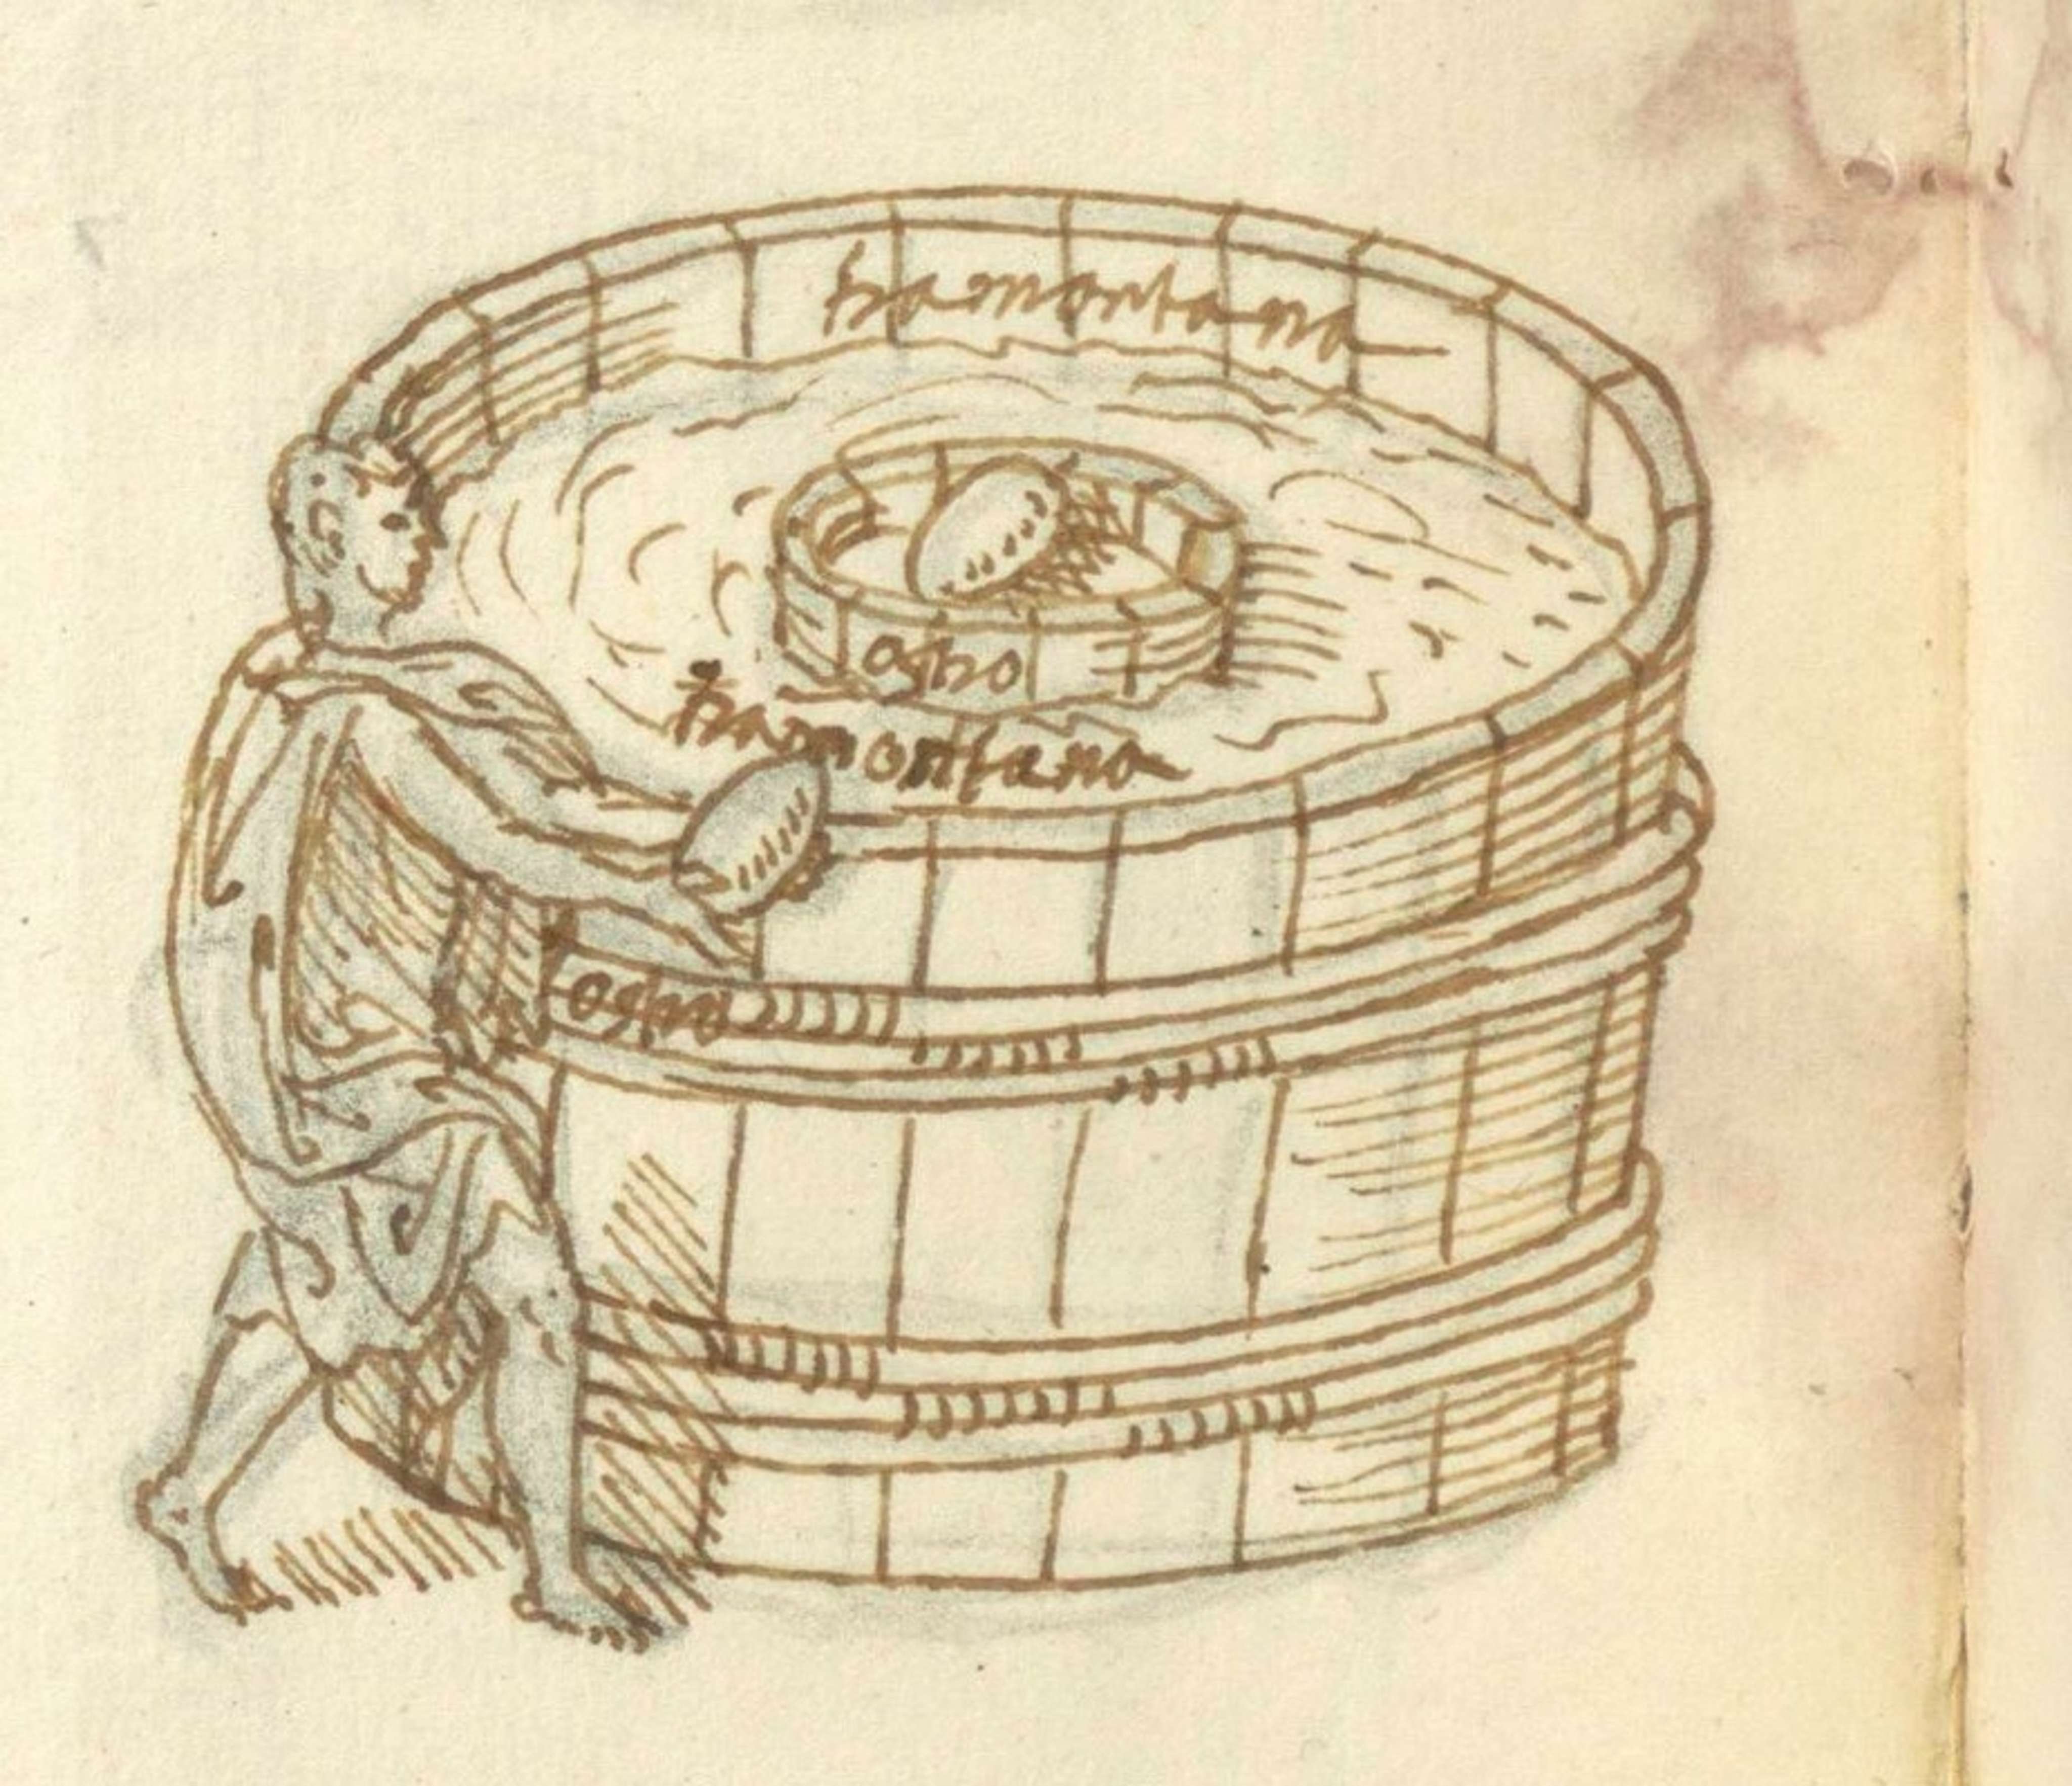 tramontana
ostro
tramontana
ostro